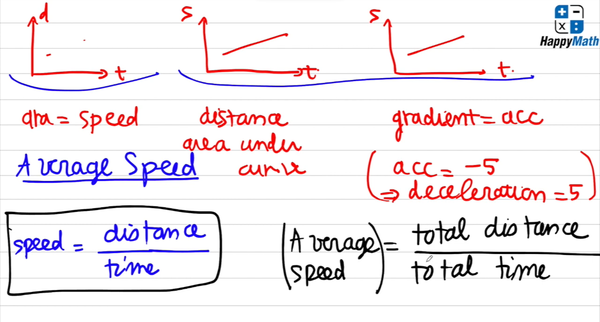 d
s
s
HappyMath
t
t
t
gra = speed
distance
area under
curve
gradient = acc
Average Speed
acc = -5
⇒ deceleration = 5
speed = distance
time
Average speed = total distance
total time